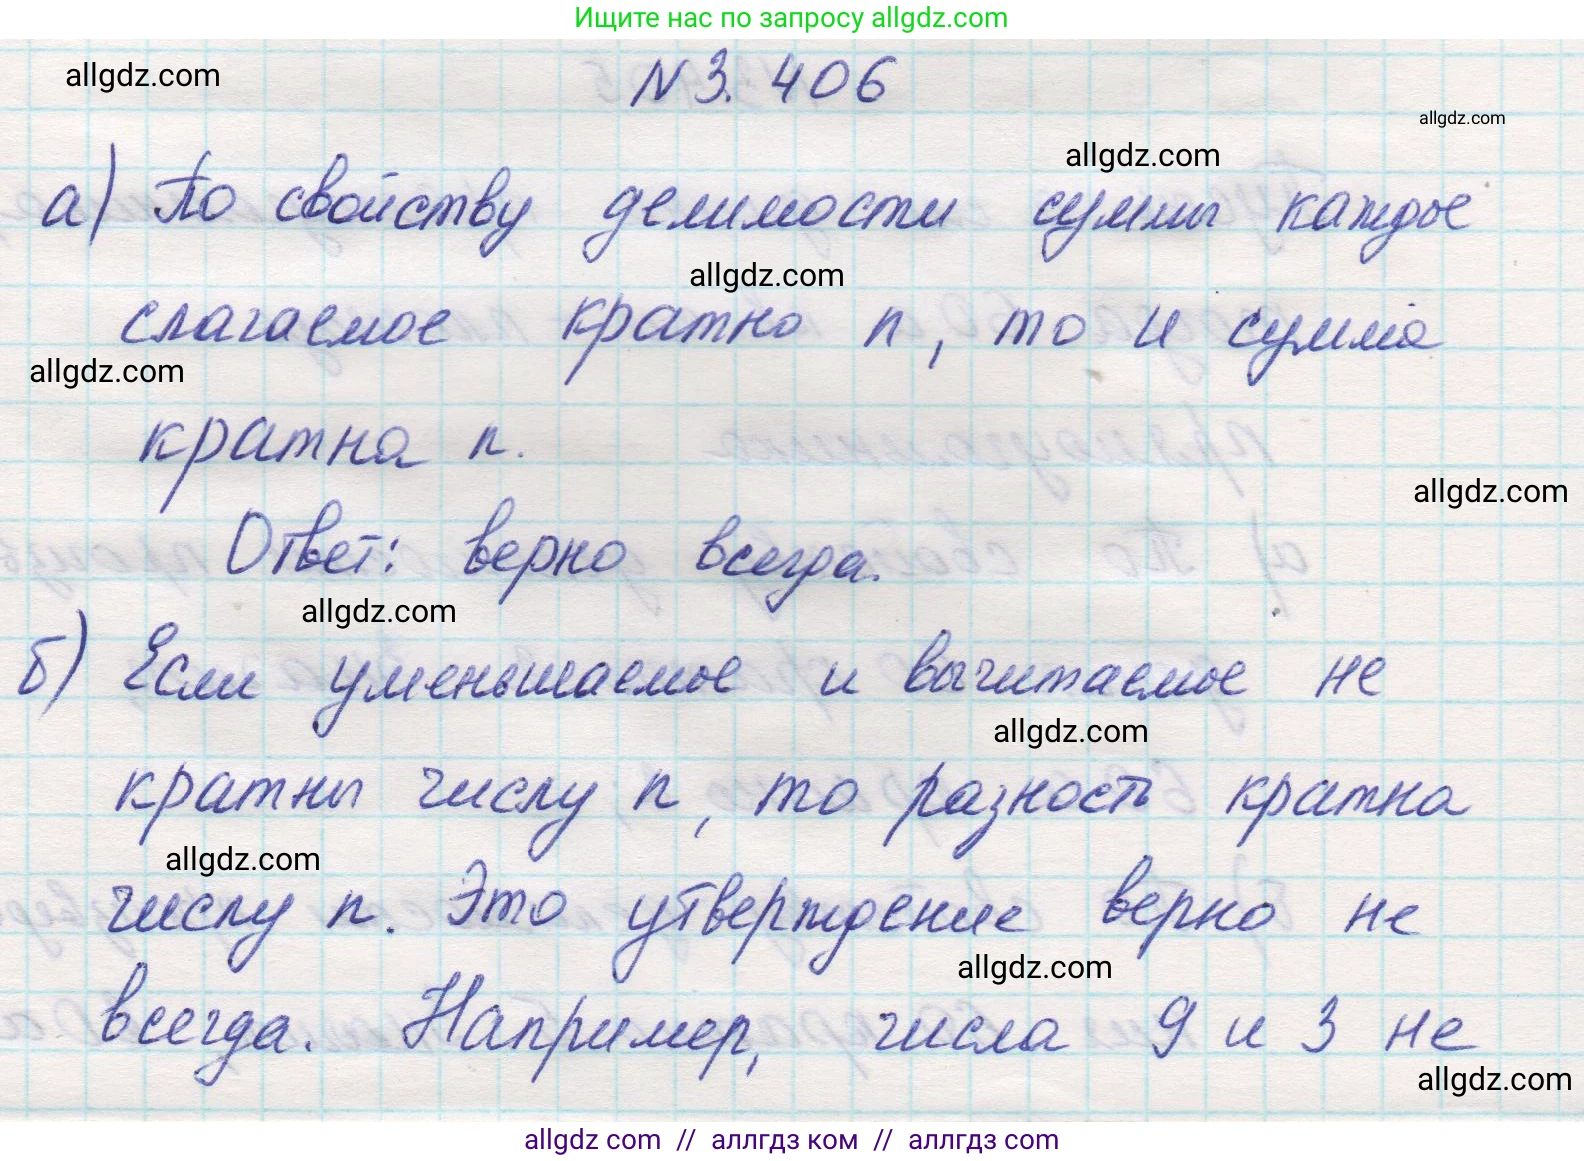 Ищите нас по запросу allgdz.com
allgdz.com
N 3. 406
allgdz.com
allgdz.com
а) По свойству делимости суммы каждое
allgdz.com
слагаемое кратно n, то и сумма
allgdz.com
кратна n.
allgdz.com
Ответ: верно всегда.
allgdz.com
б) Если уменьшаемое и вычитаемое не
allgdz.com
кратны числу n, то разность кратна
allgdz.com
числу n. Это утверждение верно не
allgdz.com
всегда. Например, числа 9 и 3 не
allgdz.com
allgdz.com // аллгдз ком // аллгдз.com